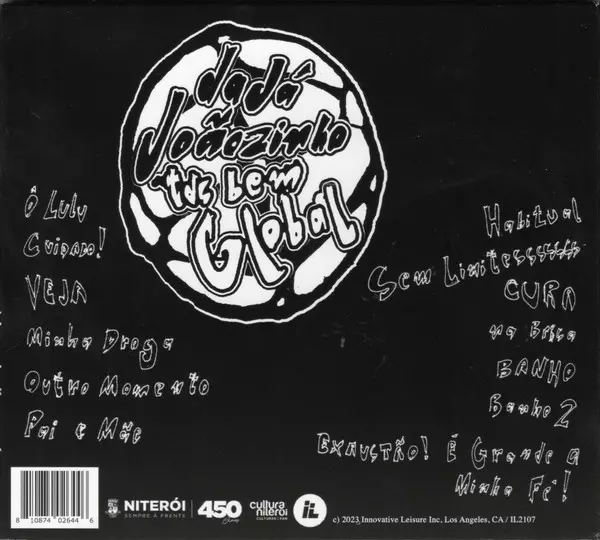 dadá
Joãozinho
tds bem
Global
Ô Lulu
Cuidado!
VEJA
Minha Droga
Outro Momento
Pai e Mãe
Habitual
Sem Limitessssssss
CURA
na Brisa
BANHO
Banho 2
EXAUSTÃO! É Grande a
Minha Fé!
8 10874 02644 6
NITERÓI
SEMPRE À FRENTE
450
anos
cultura
niterói
CULTURAS | FAN
iL
c) 2023 Innovative Leisure Inc, Los Angeles, CA / IL2107